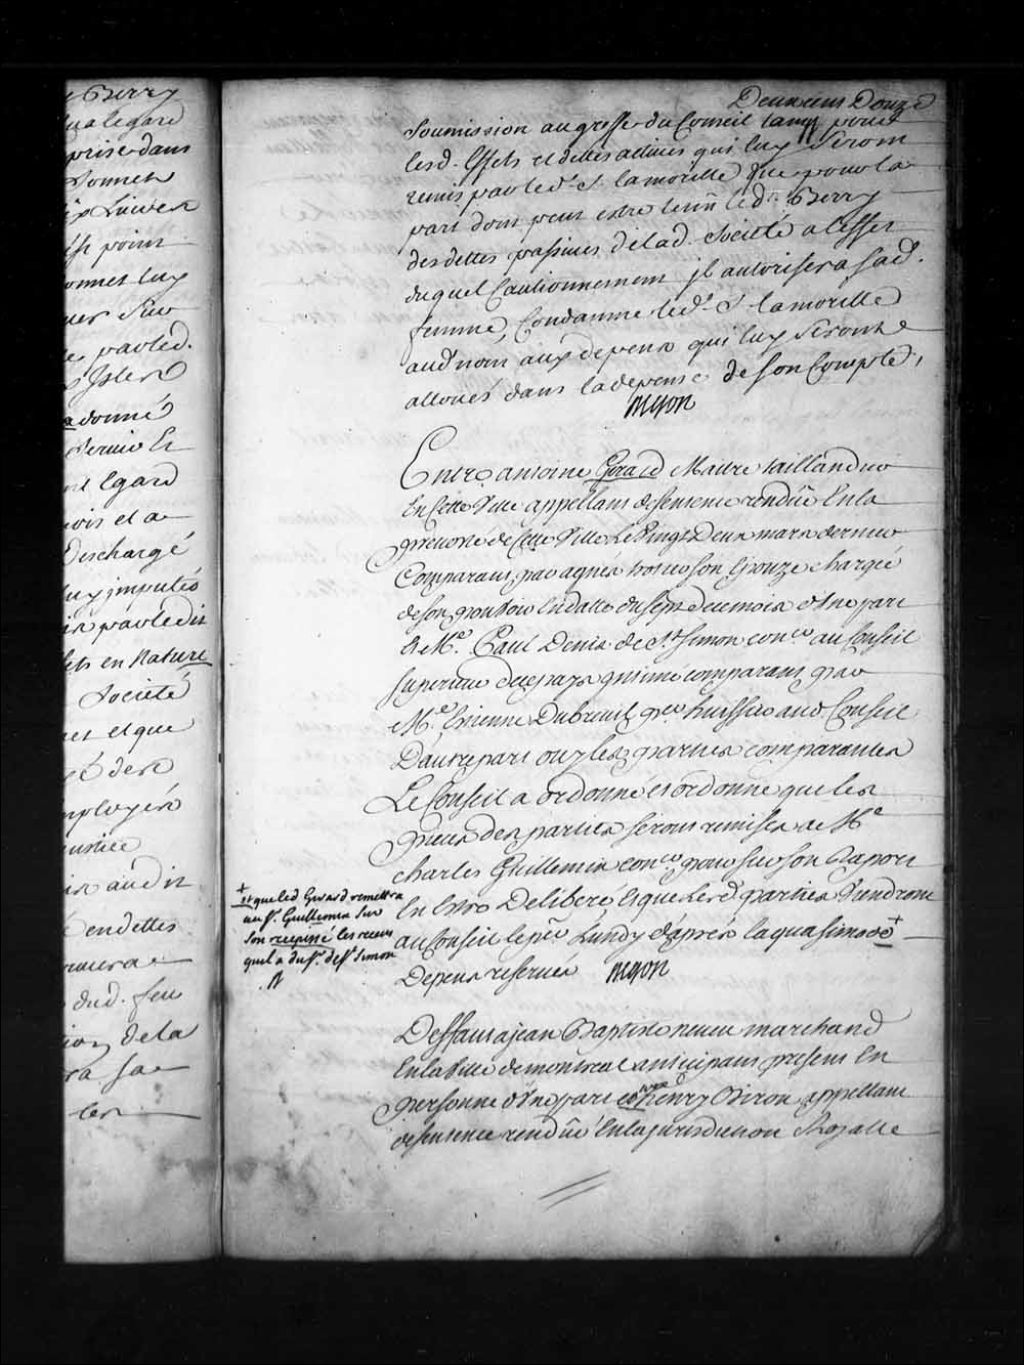 e Berry
qua legard
prise dans
Sonnet
Luy
point
onnet luy
par led.
donné
dernier Et
Egard
ois et a
Deschargé
luy imputés
par ledit
ets en Nature
Societé
et que
mployés
Justice
audit
en dettes
dud. feu
de la
ra sa
les
Deux cens Douze
Soumission au greffe du Conseil tant pour
lesd. Effets et dettes actives qui luy seront
remis par led. Sr. lamorille que pour la
part dont peut estre tenü led. Sr Berry
des dettes passives de lad. Societé a leffet
duquel Cautionnement jl autorisera sad.
femme, Condamne led. Sr. lamorille
aud. nom aux depens qui luy seront
alloués dans la depense de son Compte,
Begon
Entre antoine Gerard Maitre taillandier
En Cette Ville appellant de sentence rendüe En la
prevosté de Cette Ville Le Vingt Deux mars dernier
Comparant par agnés son Epouze chargée
de son pouvoir En datte du sept de ce mois d'une part
& Me. Paul Denis de St. Simon coner au Conseil
superieur de ce pays jntimé comparant par
Me. Etienne Dubreuil per huissier aud Conseil
D'autre part ouy les parties comparantes
Le Conseil a ordonné et ordonne que les
pieces des parties seront remises a Me
Charles Guillemin coner pour sur son Raport
En Estre Deliberé Et que lesd. parties Viendront
au Conseil le per Lundy d'aprés la quasimodo +
Depens reservés Begon
+
et que led Gerard remettra
au Sr. Guillemin Sur
son recepissé les receus
quil a du Sr. de St. Simon
B
Deffaut a jean Baptiste neveu marchand
En la Ville de montreal anticipant present En
personne d'une part contre henry Biron appellant
de sentence rendüe En la jurisdiction Royalle